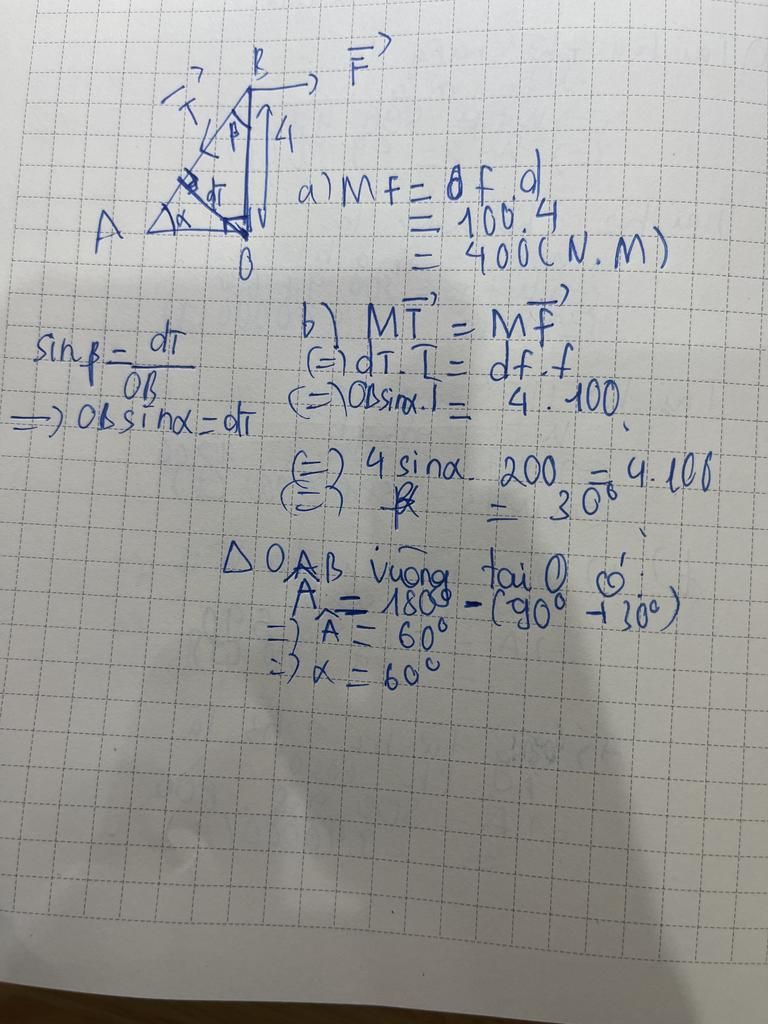 B
F
T
β
4
dT
A
α
O
a) MF = f.d
= 100.4
= 400 (N.M)
sin β = dT / OB
=> OB sin α = dT
b) MT = MF
(=) dT. T = df. f
(=) OB sin α. T = 4. 100
(=) 4 sin α. 200 = 4.100
(=) = 30°
Δ OAB vuông tại O có:
Â = 180° - (90° + 30°)
=> Â = 60°
=> α = 60°